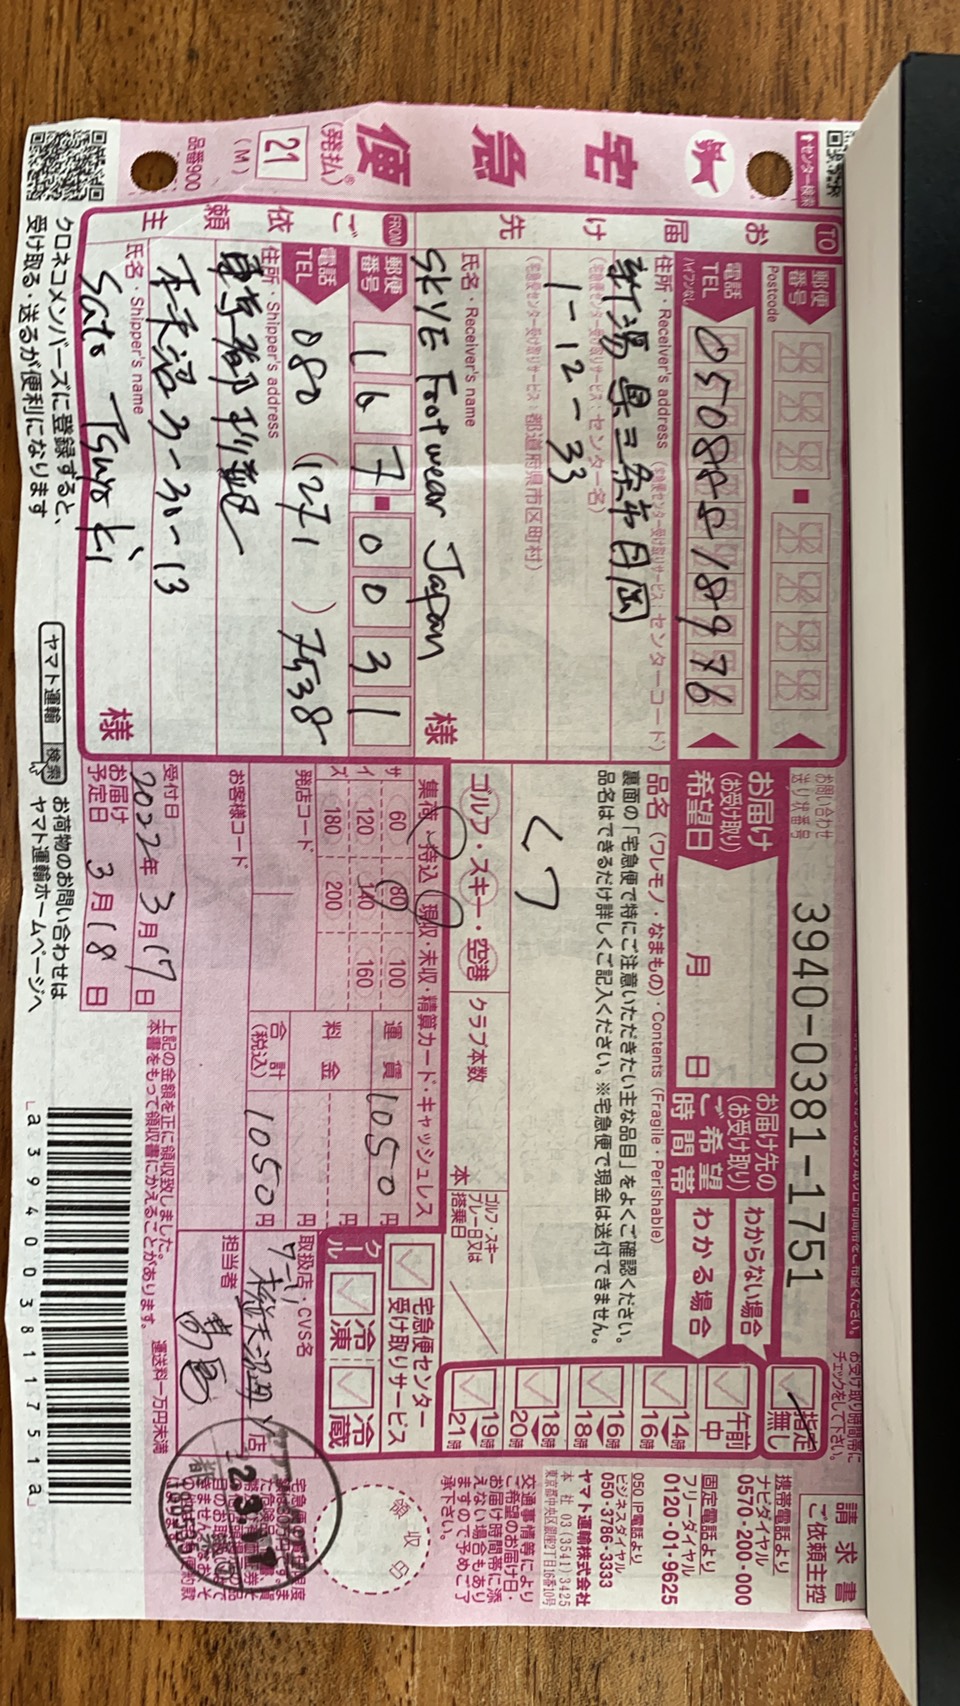 宅急便
(発払い)®
21
(M)
品番900
センター検索
TO
お届け先
郵便番号
Postcode
電話
TEL
ハイフンなし
05088818976
住所・Receiver's address
(宅急便センター受け取りサービス:センターコード)
新潟県三条市月岡
(宅急便センター受け取りサービス:センター名)
1-12-33
(宅急便センター受け取りサービス:都道府県市区町村)
氏名・Receiver's name
SKYE Footwear Japan
様
FROM
ご依頼主
郵便番号
167-0031
電話
TEL
080 (1271) 7538
住所・Shipper's address
東京都杉並区
3-31-13
氏名・Shipper's name
Sato Tsuyoshi
様
クロネコメンバーズに登録すると、
受け取る・送るが便利になります
ヤマト運輸 検索
お荷物のお問い合わせは
ヤマト運輸ホームページへ
お問い合わせ
送り状番号
3940-0381-1751
お届け
(お受け取り)
希望日
月 日
お届け先の
(お受け取り)
ご希望
時間帯
わからない場合
わかる場合
お受け取り時間帯に
チェックをして下さい。
指定無し
午前中
14時▶16時
16時▶18時
18時▶20時
19時▶21時
品名 (ワレモノ・なまもの)・Contents (Fragile・Perishable)
裏面の「宅急便で特にご注意いただきたい主な品目」をよくご確認ください。
品名はできるだけ詳しくご記入ください。※宅急便で現金は送付できません。
クツ
ゴルフ・スキー・空港
クラブ本数
本
ゴルフ・スキー
プレー日又は
搭乗日
集荷・持込 現収・未収・精算カード・キャッシュレス
サイズ
60 80 100
120 140 160
180 200
運賃 1050円
料金 円
合計(税込) 1050円
発店コード
お客様コード
受付日
2022年3月17日
お届け予定日
3月18日
上記の金額を正に領収致しました。
本書をもって領収書にかえることがあります。
運送料一万円未満
宅急便センター
受け取りサービス
クール
冷凍
冷蔵
取扱店・CVS名
店
担当者
a394003811751a
請求書
ご依頼主控
携帯電話より
ナビダイヤル
0570-200-000
固定電話より
フリーダイヤル
0120-01-9625
050 IP電話より
ビジネスダイヤル
050-3786-3333
ヤマト運輸株式会社
本社 03(3541)3425
東京都中央区銀座2丁目16番10号
交通事情等により
ご希望のお届け日・
お届け時間帯に添
えない場合もあり
ますので予めご了
承下さい。
領収印